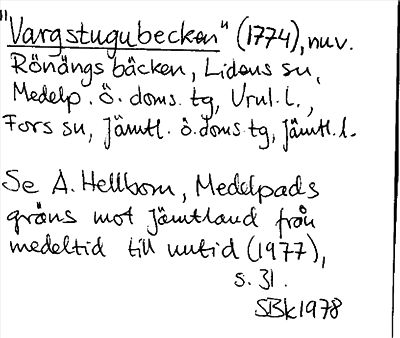 "Vargstugubecken" (1774), nuv.
Rönängsbäcken, Lidens sn,
Medelp. ö. doms. tg, Vrnl. l.,
Fors sn, Jämtl. ö. doms. tg, Jämtl. l.
Se A. Hellbom, Medelpads
gräns mot Jämtland från
medeltid till nutid (1977),
s. 31.
SBk 1978